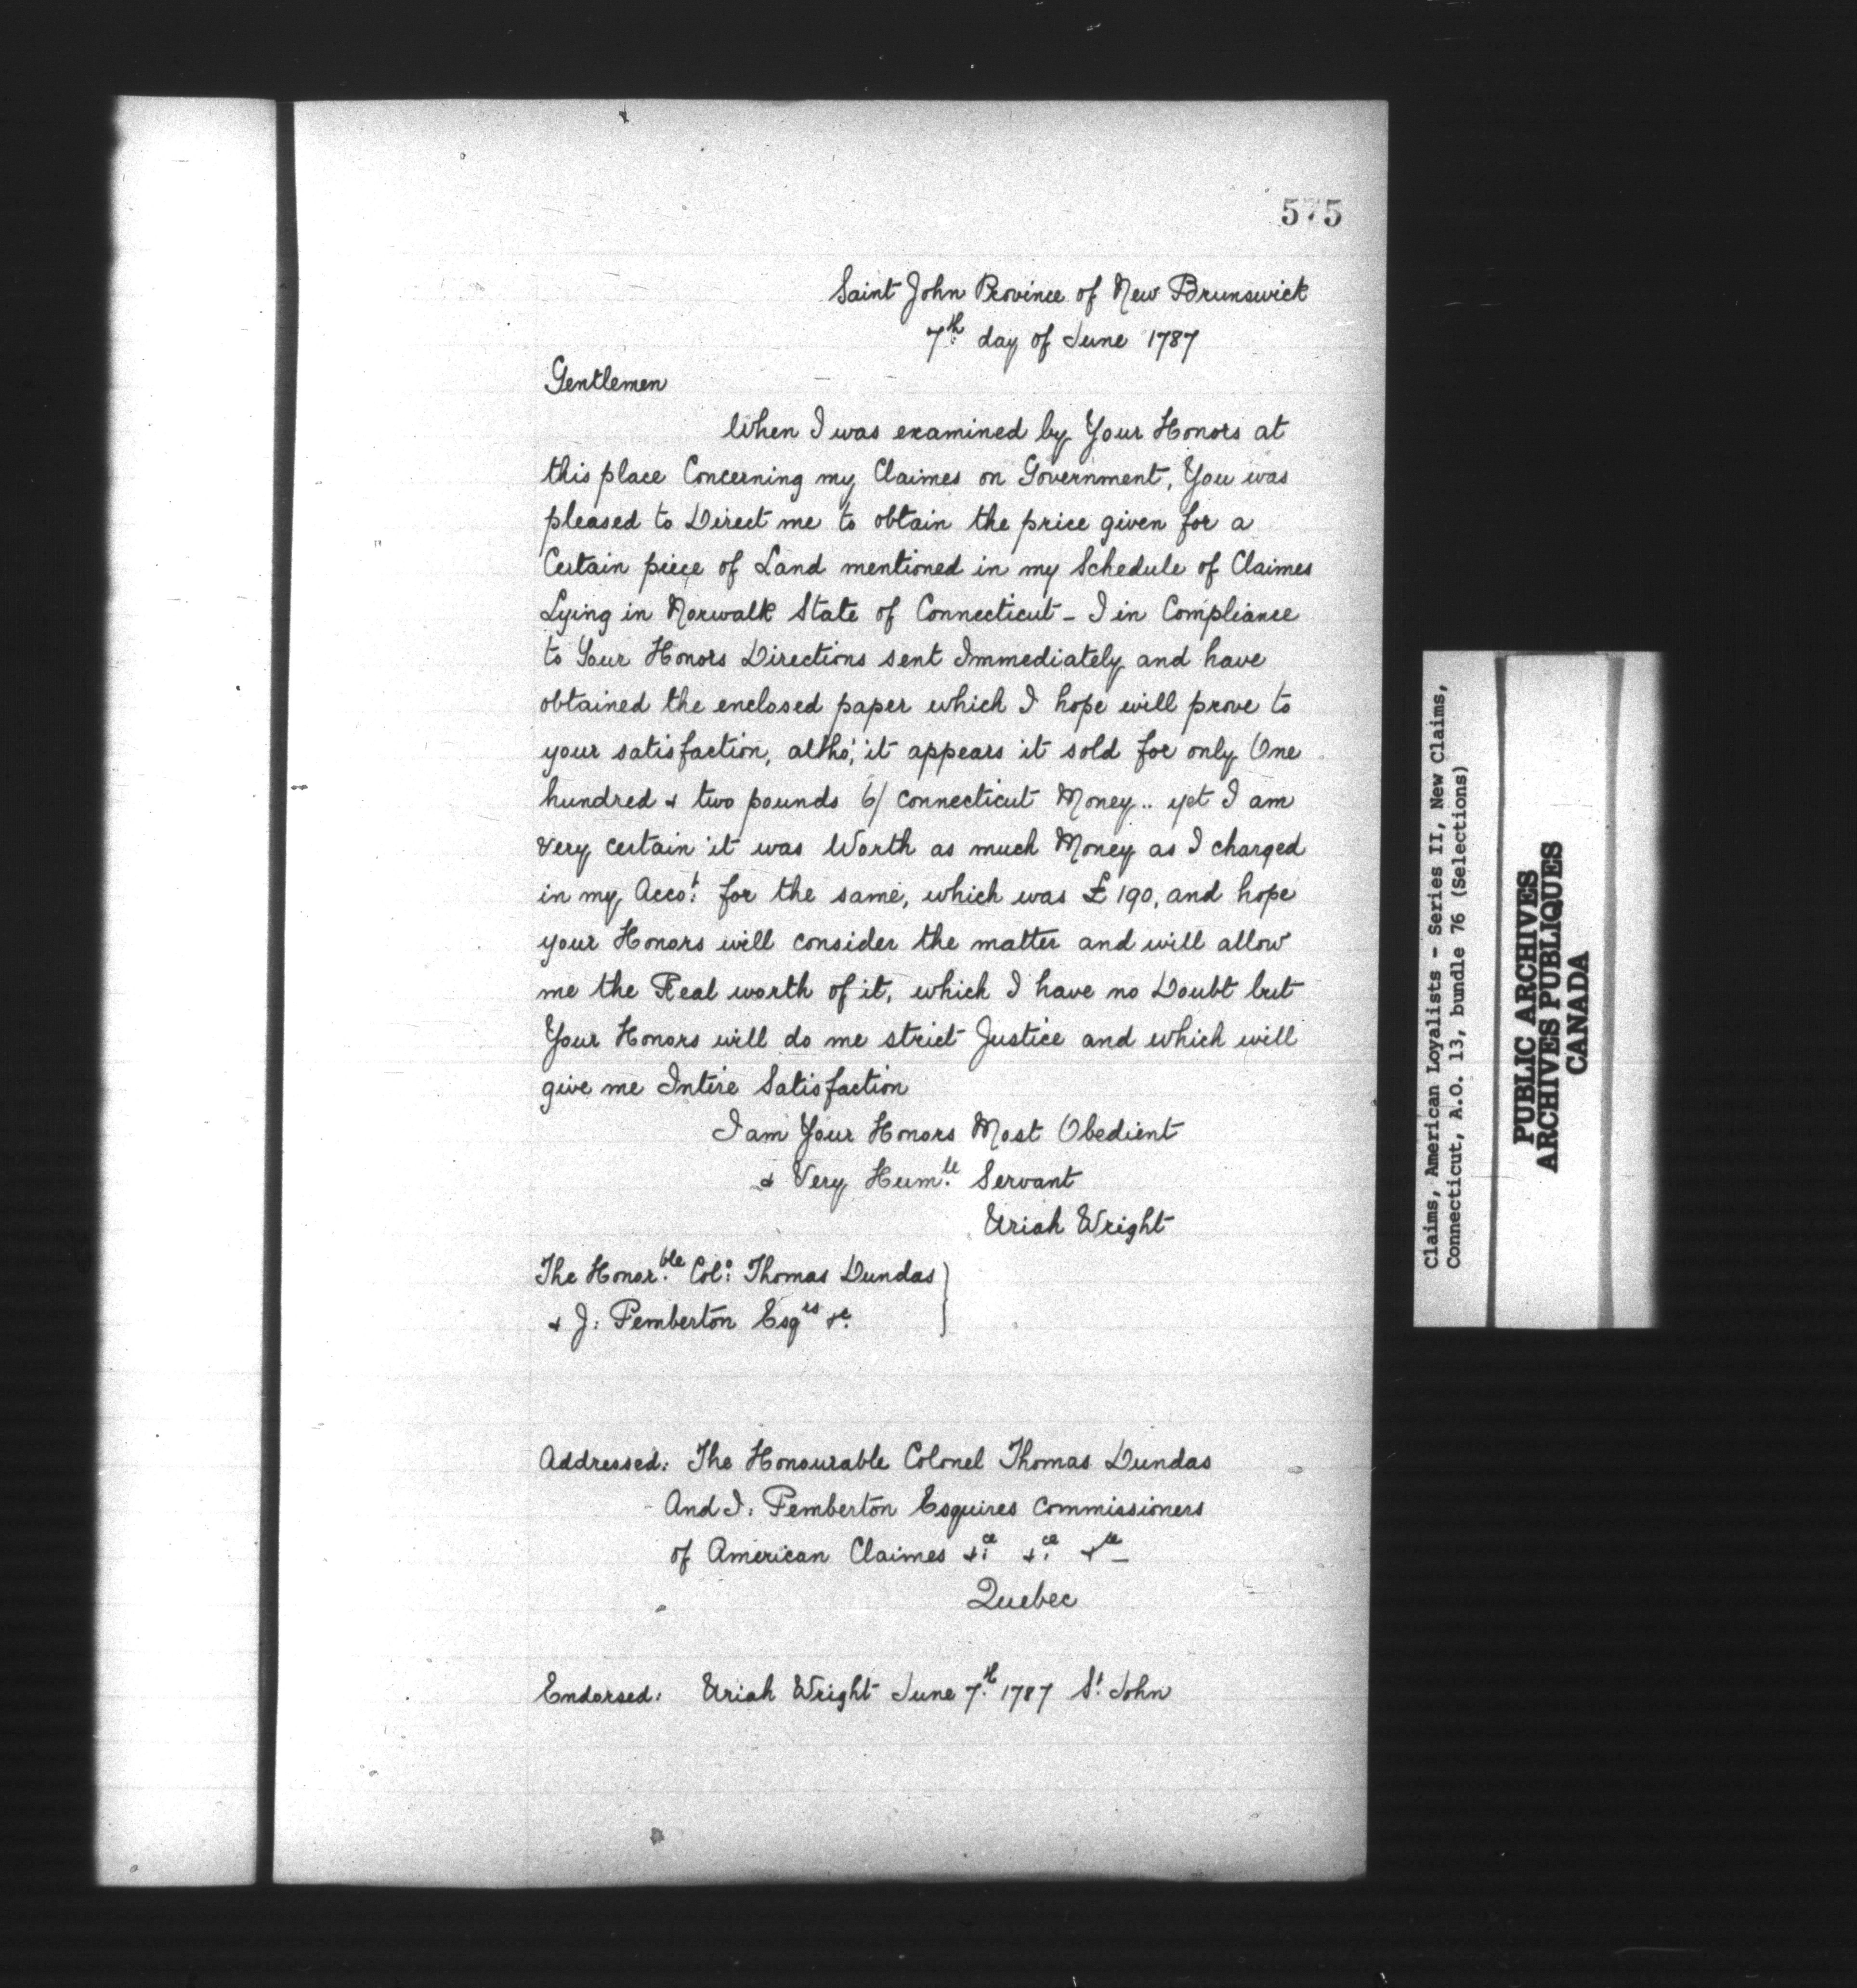 575
Saint John Province of New Brunswick
7th day of June 1787
Gentlemen
When I was examined by Your Honors at
this place Concerning my Claimes on Government, You was
pleased to Direct me to obtain the price given for a
Certain piece of Land mentioned in my Schedule of Claimes
Lying in Norwalk State of Connecticut - I in Compliance
to Your Honors Directions sent Immediately and have
obtained the enclosed paper which I hope will prove to
your satisfaction, altho', it appears it sold for only One
hundred & two pounds 6/ Connecticut Money.. yet I am
very certain it was Worth as much Money as I charged
in my Acco:t for the same, which was £190, and hope
your Honors will consider the matter and will allow
me the Real worth of it, which I have no Doubt but
Your Honors will do me strict Justice and which will
give me Intire Satisfaction
I am Your Honors Most Obedient
& Very Hum:le Servant
Uriah Wright
The Honor:ble Col:o Thomas Dundas }
& J: Pemberton Esqrs &c.
Addressed: The Honourable Colonel Thomas Dundas
And J: Pemberton Esquires Commissioners
of American Claimes &:ca &:ca &ca
Quebec
Endorsed: Uriah Wright June 7:th 1787 S:t John
Claims, American Loyalists - Series II, New Claims,
Connecticut, A.O. 13, bundle 76 (Selections)
PUBLIC ARCHIVES
ARCHIVES PUBLIQUES
CANADA